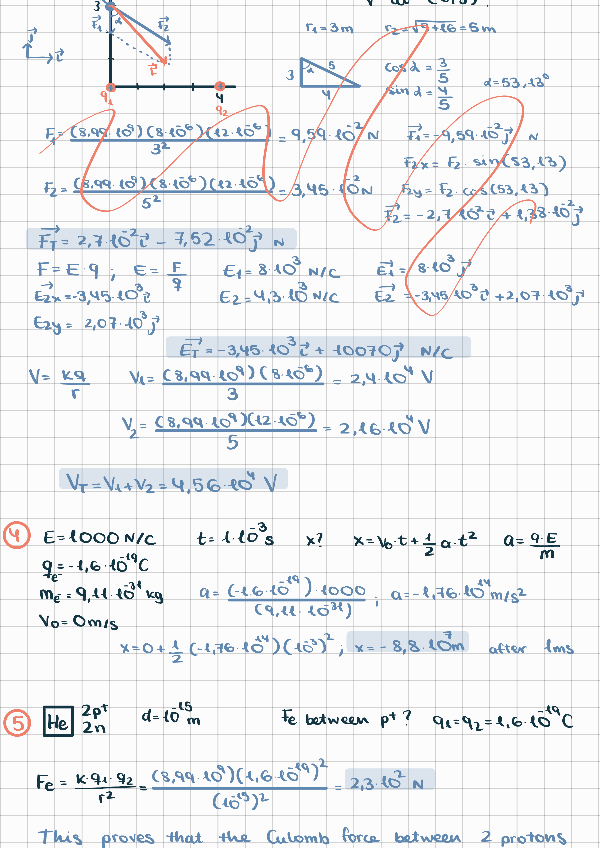 3
r₁=3m r₂=√9+16=5m
F₁ F₂
α
F
j i
3 α 5 4
cos α = 3/5 α=53,13°
sin α = 4/5
q₁ 4 q₂
F₁= (8,99·10⁹)(8·10⁻⁶)(12·10⁻⁶) / 3² = 9,59·10⁻² N F₁=-9,59·10⁻² j N
F₂x = F₂ · sin(53,13)
F₂= (8,99·10⁹)(8·10⁻⁶)(12·10⁻⁶) / 5² = 3,45·10⁻² N F₂y = F₂ · cos(53,13)
F₂ = -2,7·10⁻² i + 1,38·10⁻² j
F_T = 2,7·10⁻² i - 7,52·10⁻² j N
F = E·q ; E = F/q E₁ = 8·10³ N/C E₁ = 8·10³ j
E₂x=-3,45·10³ i E₂ = 4,3·10³ N/C E₂ = -3,45·10³ i + 2,07·10³ j
E₂y = 2,07·10³ j
E_T = -3,45·10³ i + 10070 j N/C
V= kq/r V₁= (8,99·10⁹)(8·10⁻⁶) / 3 = 2,4·10⁴ V
V₂= (8,99·10⁹)(12·10⁻⁶) / 5 = 2,16·10⁴ V
V_T = V₁+V₂ = 4,56·10⁴ V
4 E=1000 N/C t=1·10⁻³s x? x=V₀·t+1/2 a·t² a= q·E/m
qe⁻=-1,6·10⁻¹⁹C
me⁻= 9,11·10⁻³¹ kg a= (-1,6·10⁻¹⁹)·1000 / (9,11·10⁻³¹) ; a=-1,76·10¹⁴ m/s²
V₀=0m/s
x=0+1/2 (-1,76·10¹⁴)(10⁻³)² ; x=-8,8·10⁷m after 1ms
5 He 2p⁺ d=10⁻¹⁵ m Fe between p⁺? q₁=q₂=1,6·10⁻¹⁹C
2n
Fe = k·q₁·q₂ / r² = (8,99·10⁹)(1,6·10⁻¹⁹)² / (10⁻¹⁵)² = 2,3·10² N
This proves that the Culomb force between 2 protons